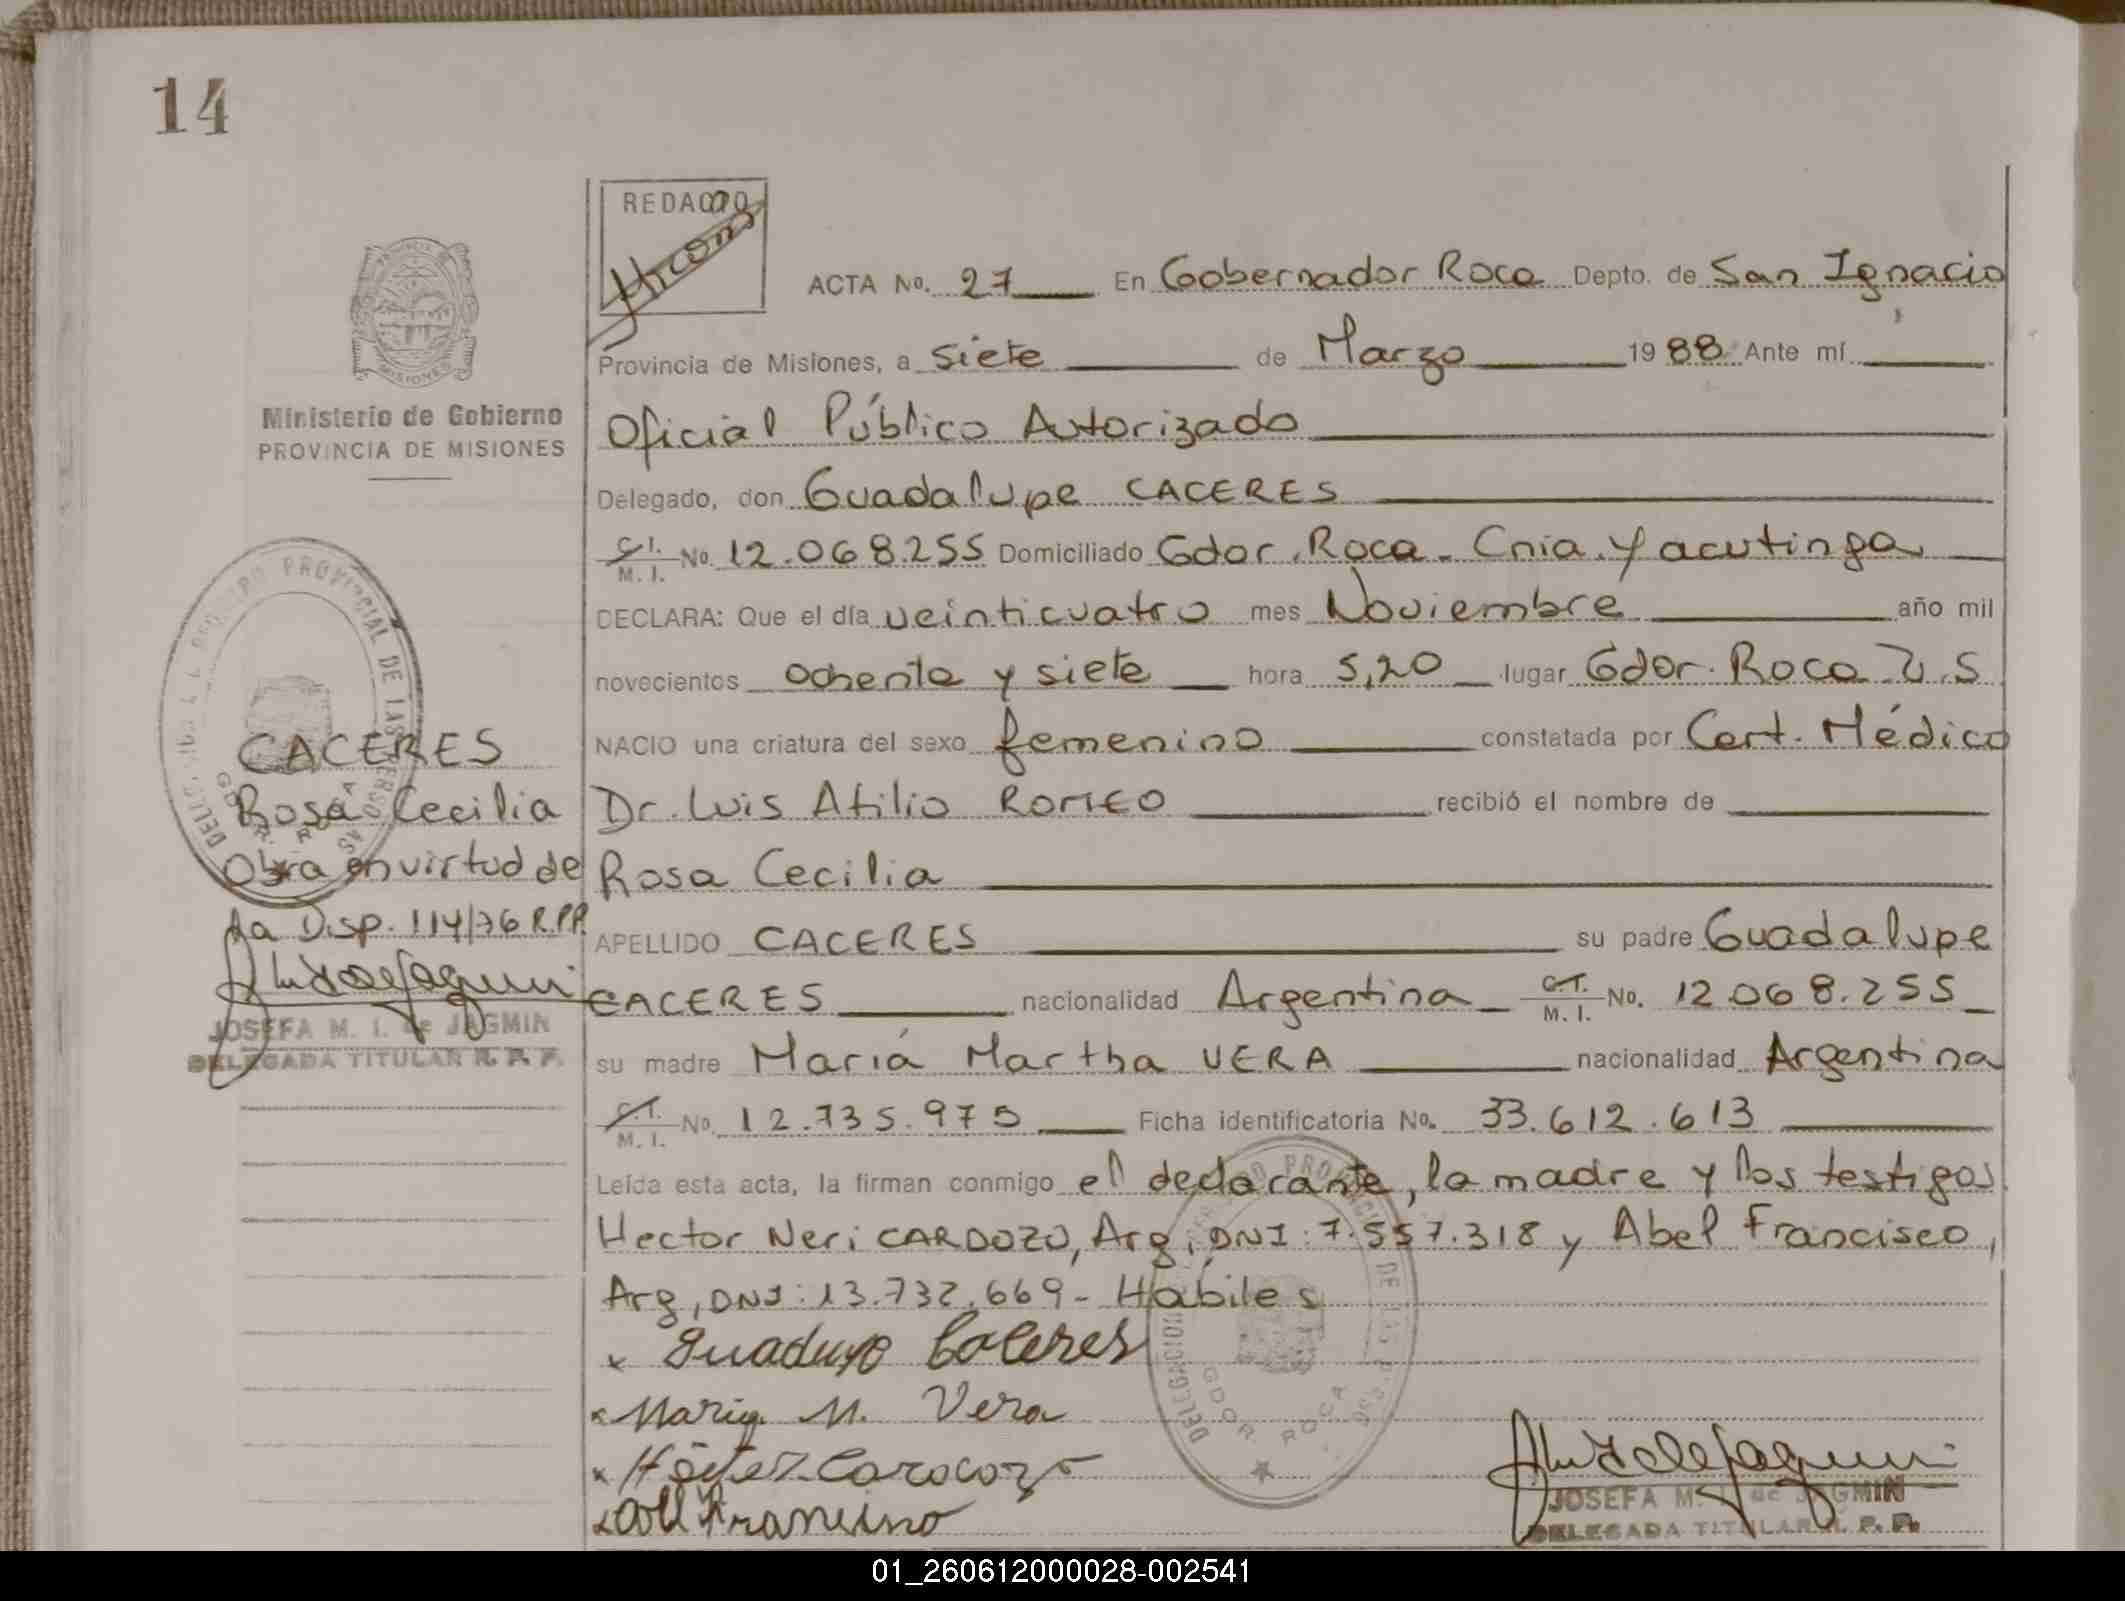 14
REDACTO
ACTA No. 27 En Gobernador Roca Depto. de San Ignacio
Provincia de Misiones, a siete de Marzo 1988 Ante mí
Oficial Público Autorizado
Delegado, don Guadalupe CACERES
C.I. M.I. No. 12.068.255 Domiciliado Gdor. Roca - Cnia. Yacutinga
DECLARA: Que el día veinticuatro mes Noviembre año mil
novecientos ochenta y siete hora 5,20 lugar Gdor. Roca U.S
NACIO una criatura del sexo femenino constatada por Cert. Médico
Dr. Luis Atilio ROMEO recibió el nombre de
Rosa Cecilia
APELLIDO CACERES su padre Guadalupe
CACERES nacionalidad Argentina C.I. M.I. No. 12.068.255
su madre María Martha VERA nacionalidad Argentina
C.I. M.I. No. 12.735.975 Ficha identificatoria No. 33.612.613
Leída esta acta, la firman conmigo el declarante, la madre y los testigos
Hector Neri CARDOZO, Arg, DNI: 7.557.318 y Abel Francisco,
Arg, DNI: 13.732.669 - Hábiles
x Caceres
x Maria M. Vera
JOSEFA M. I. de JAGMIN
DELEGADA TITULAR R. P. P.
PROVINCIA
MISIONES
Ministerio de Gobierno
PROVINCIA DE MISIONES
CACERES
Rosa Cecilia
Obra en virtud de
la Disp. 114/76 R.P.P.
JOSEFA M. I. de JAGMIN
DELEGADA TITULAR R. P. P.
PROVINCIAL DE LAS
GDOR. ROCA
01_260612000028-002541